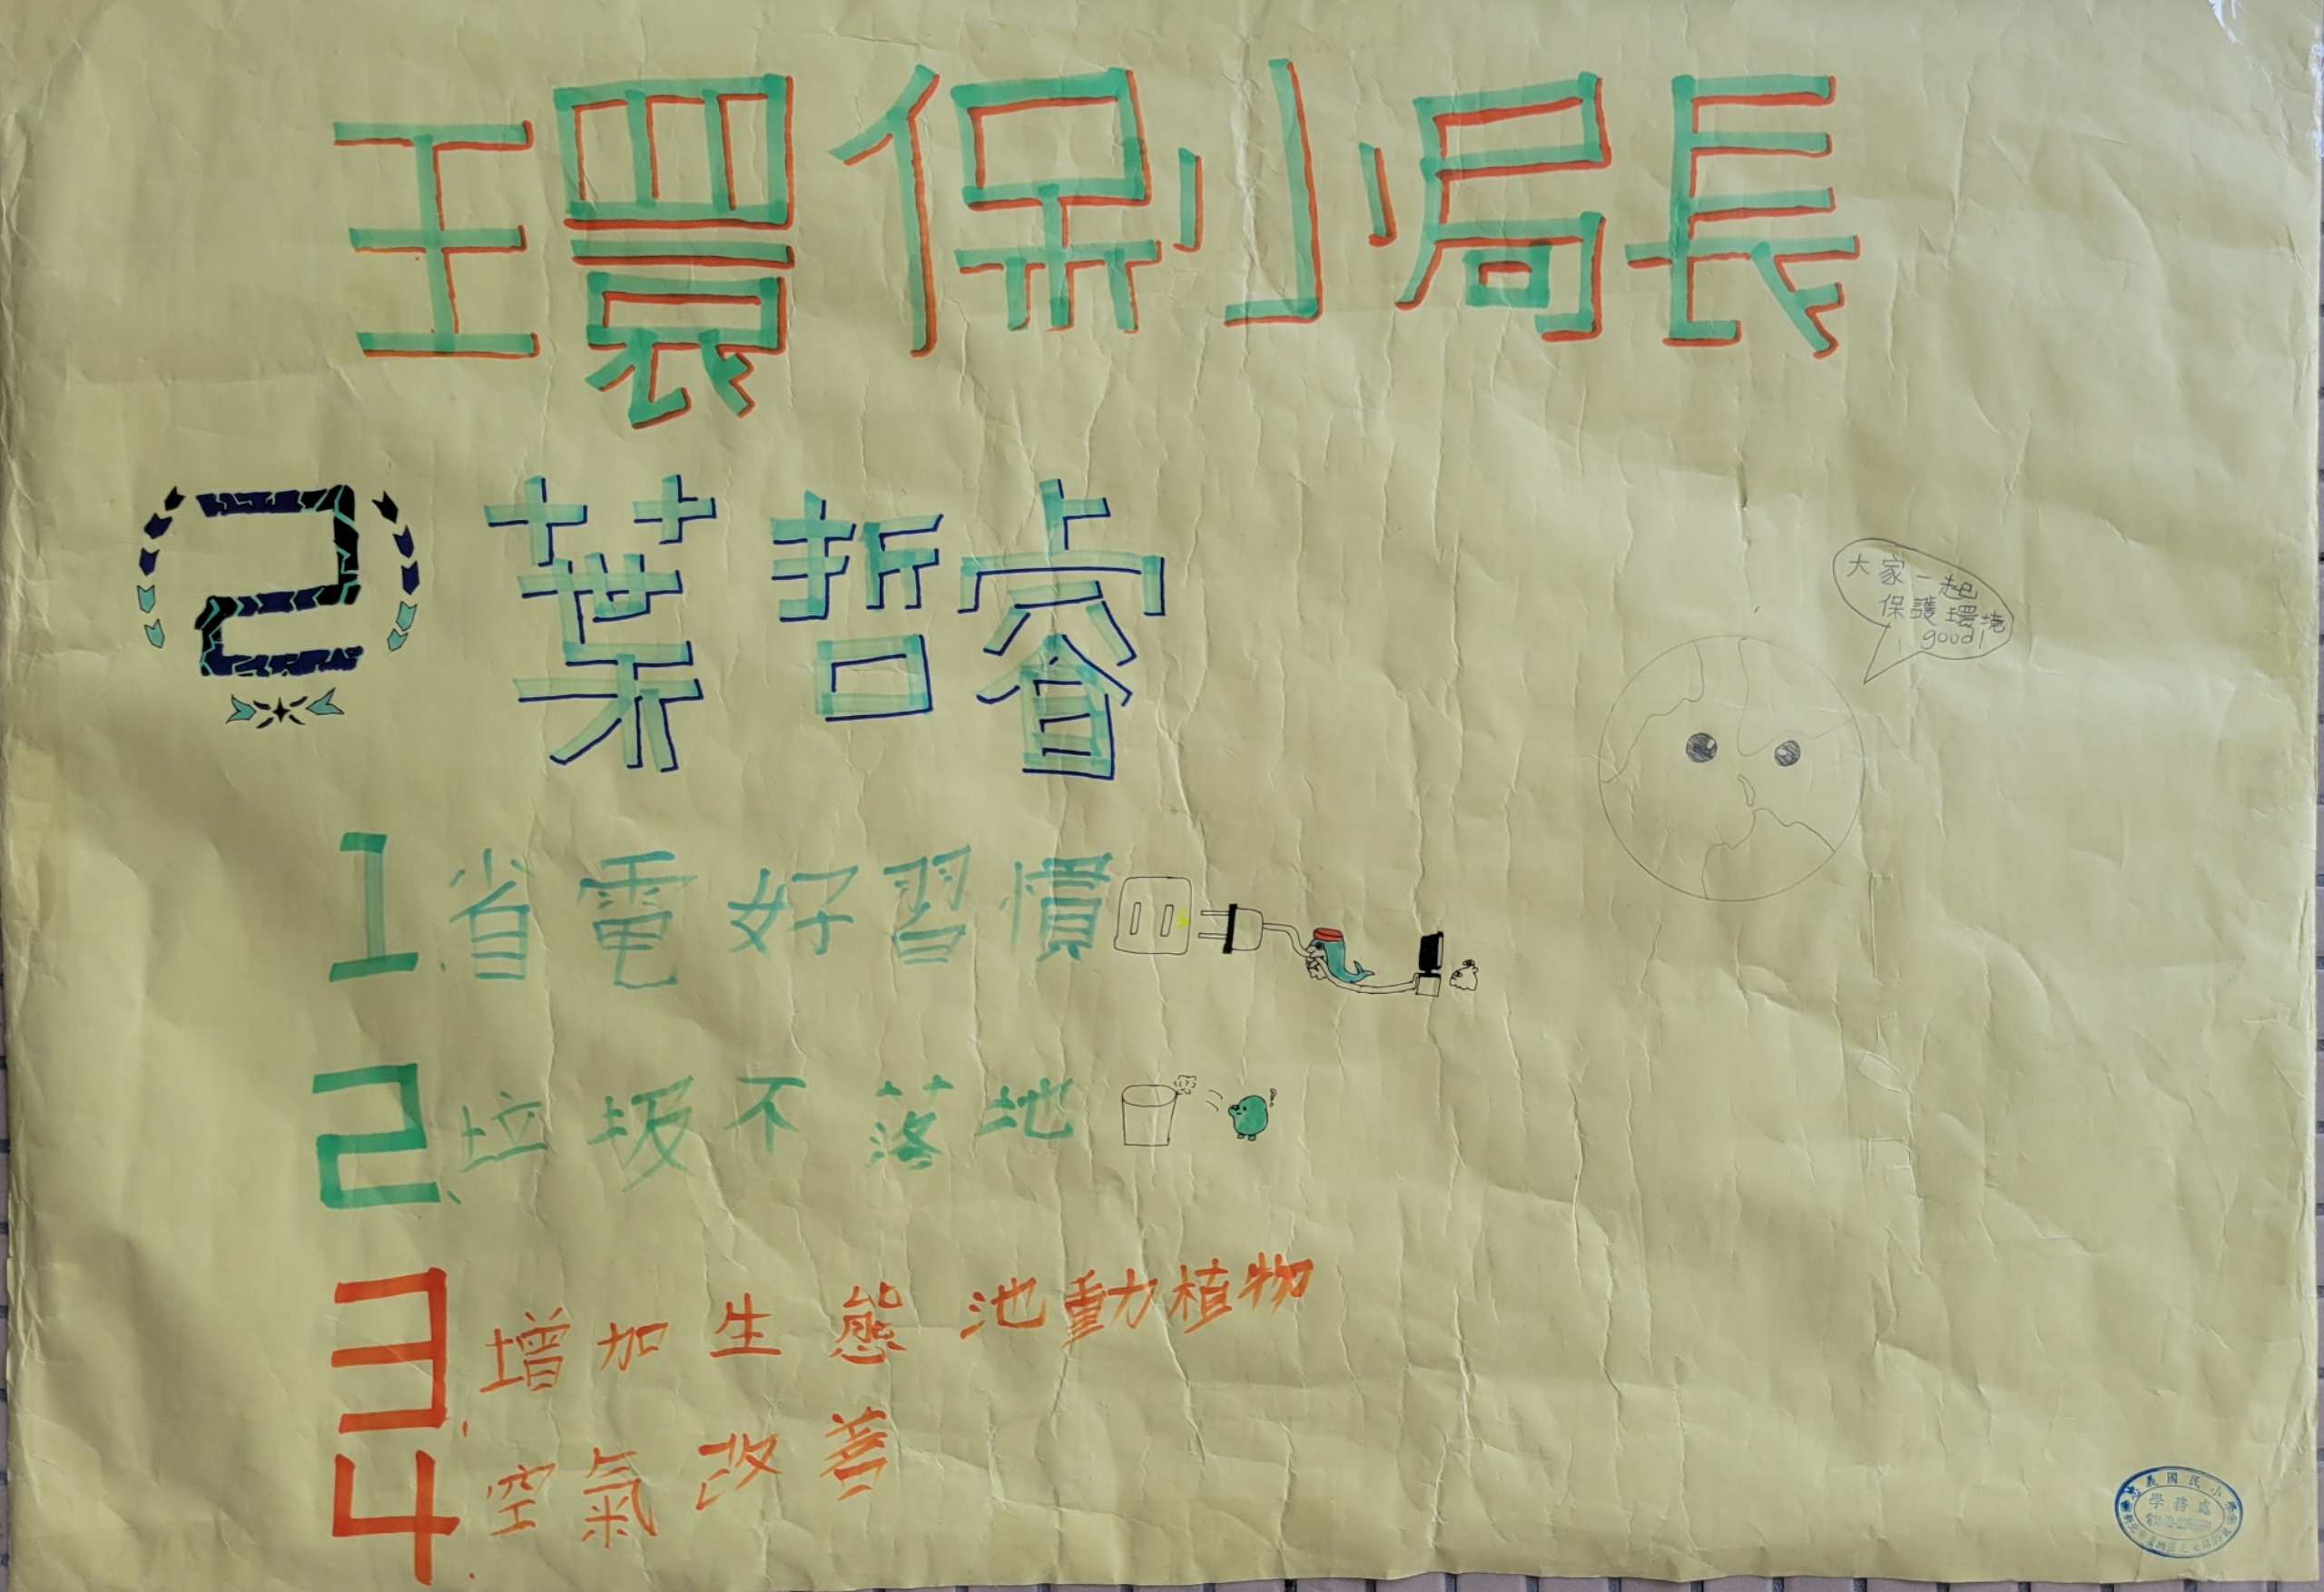 環保小局長
2 葉哲睿
大家一起
保護環境
good!
1.省電好習慣
2、垃圾不落地
3、增加生態池動植物
4.空氣改善
義國民小學
學務處